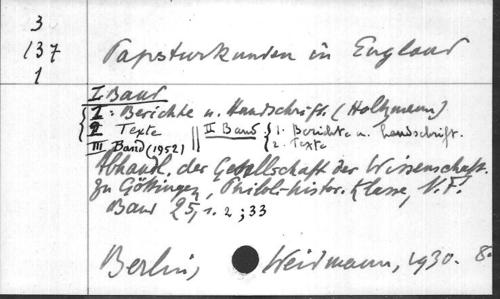 3
137
1
Papsturkunden in England
I. Band
1: Berichte u. Handschrift. (Holtzmann)
2 Texte || II Band { 1. Berichte u. Handschrift.
2. Texte
III Band (1952)
Abhandl. der Gesellschaft der Wissensch.
zu Göttingen, Philol.-histor. Klasse, N.F.
Band 25, 1. 2 ; 33
Berlin, Weidmann, 1930. 8.